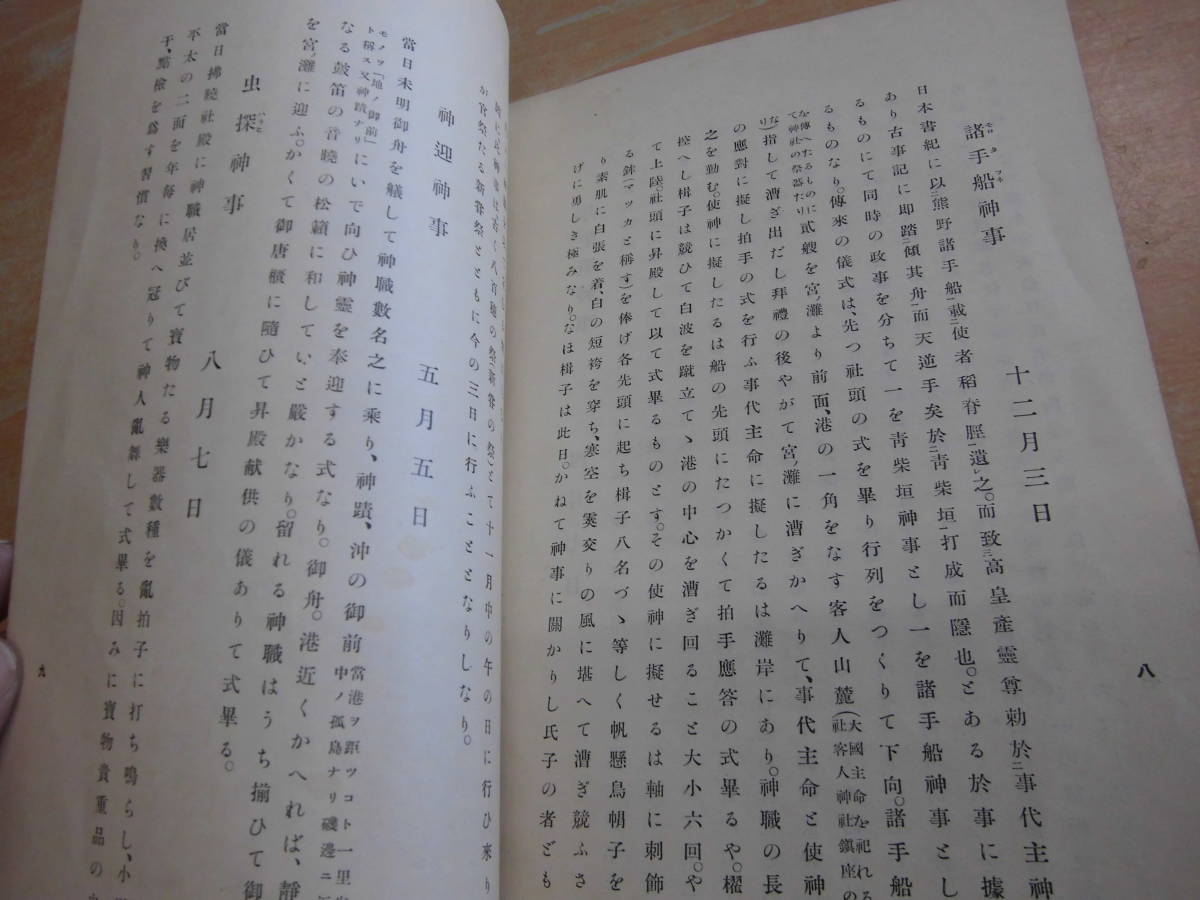 八
諸手船神事
モロタフネ
十二月三日
日本書紀に以熊野諸手船載使者稻脊脛遣之。而致高皇產靈尊勅於事代主神
あり古事記に即踏傾其舟而天逆手矣於青柴垣打成而隱也。とある於事に據
るものにて同時の政事を分ちて一を青柴垣神事とし一を諸手船神事とし
るものなり。傳來の儀式は、先つ社頭の式を畢り行列をつくりて下向。諸手船
を傳へたるものに
て神社の祭器たり
貳艘を宮ノ灘より前面、港の一角をなす客人山麓(大國主命を祀れる
社客人神社鎭座の
な)指して漕ぎ出だし拜禮の後やがて宮ノ灘に漕ぎかへりて、事代主命と使神
の應對に擬し拍手の式を行ふ事代主命に擬したるは灘岸にあり。神職の長
之を勤む。使神に擬したるは船の先頭にたつかくて拍手應答の式畢るや。櫂
控へし楫子は競ひて白波を蹴立てゝ港の中心を漕ぎ回ること大小六回。や
て上陸。社頭に昇殿して以て式畢るものとす。その使神に擬せるは軸に刺飾
る鉾(マツカと稱す)を俸げ各先頭に起ち楫子八名づゝ等しく帆懸烏朝子を
り素肌に白張を着、白の短袴を穿ち、寒空を霙交りの風に堪へて漕ぎ競ふさ
げに勇しき極みなり。なほ楫子は此日。かねて神事に關かりし氏子の者ども
が官祭たる新甞祭とともに今の三日に行ふこととなりしなり。
神迎神事
五月五日
當日未明御舟を艤して神職數名之に乘り、神蹟、沖の御前
當港ヲ距ツコト一里
中ノ孤島ナリ磯邊ニ
モノヲ「地ノ御前」
ト稱ス又神蹟ナリ
にいで向ひ神靈を奉迎する式なり。御舟。港近くかへれば、靜
なる鼓笛の音曉の松籟に和していと嚴かなり。留れる神職はうち揃ひて御
を宮ノ灘に迎ふ。かくて御唐櫃に隨ひて昇殿献供の儀ありて式畢る。
虫探神事
八月七日
當日拂曉社殿に神職居並びて寶物たる樂器數種を亂拍子に打ち鳴らし、小
平太の二面を年每に換へ冠りて神人亂舞して式畢る。因みに寶物貴重品の
干、點檢を爲す習慣なり。
九